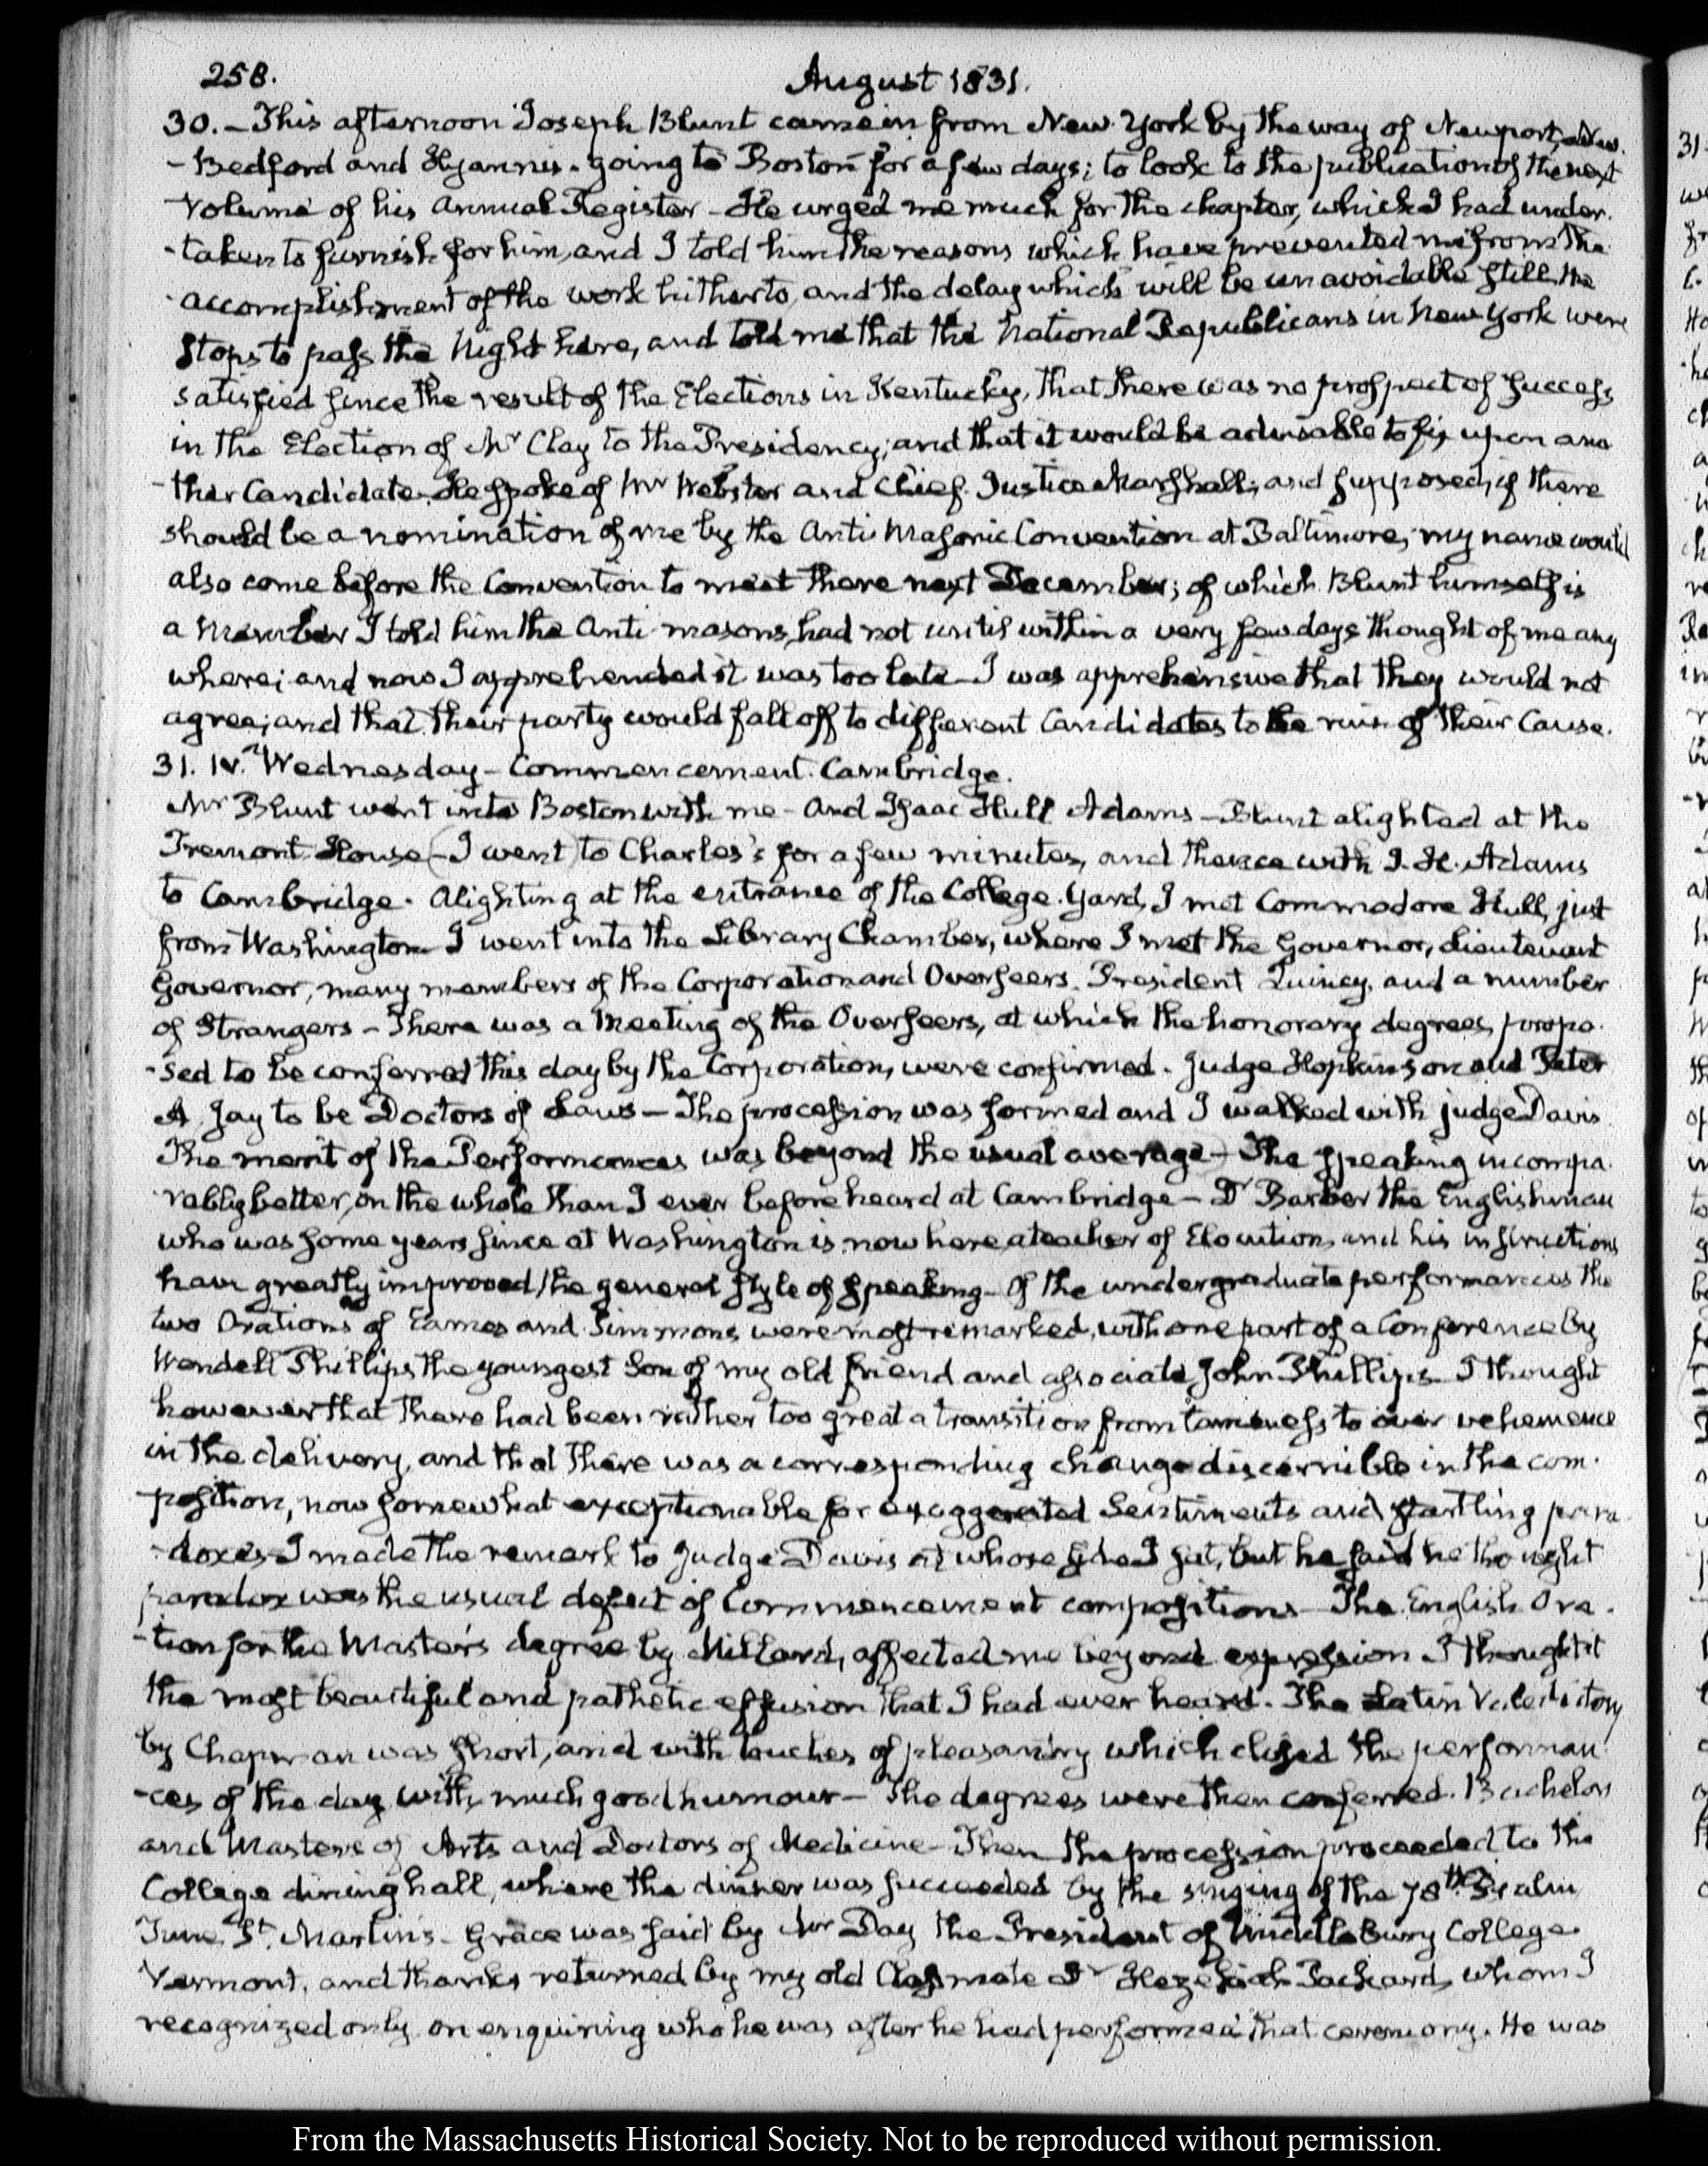 258.
August 1831.
30. - This afternoon Joseph Blunt came in from New York by the way of Newport, New.
- Bedford and Hyannis. going to Boston for a few days; to look to the publication of the next
volume of his Annual Register - He urged me much for the chapter, which I had under.
- taken to furnish for him, and I told him the reasons which have prevented me from the
- accomplishment of the work hitherto, and the delay which will be unavoidable still. He
stops to pass the Night here, and told me that the National Republicans in New York were
satisfied since the result of the Elections in Kentucky, that there was no prospect of success
in the Election of Mr Clay to the Presidency; and that it would be advisable to fix upon ano
- ther Candidate. He spoke of Mr Webster and Chief Justice Marshall; and supposed, if there
should be a nomination of me by the Anti Masonic Convention at Baltimore, my name would
also come before the Convention to meet there next December; of which Blunt himself is
a Member I told him the Anti-masons, had not until within a very few days thought of me any
where; and now I apprehended it was too late - I was apprehensive that they would not
agree; and that their party would fall off to different Candidates to the ruin of their Cause.
31. IV. Wednesday - Commencement. Cambridge.
Mr Blunt went into Boston with me - and Isaac Hull Adams - Blunt alighted at the
Tremont House - I went to Charles's for a few minutes, and thence with I. H. Adams
to Cambridge. Alighting at the entrance of the College Yard, I met Commodore Hull, just
from Washington I went into the Library Chamber, where I met the Governor, Lieutenant
Governor, many members of the Corporation and Overseers. President Quincy, and a number
of Strangers - There was a Meeting of the Overseers, at which the honorary degrees, propo.
- sed to be conferred this day by the Corporation, were confirmed. Judge Hopkinson and Peter
A. Jay to be Doctors of Laws - The procession was formed and I walked with judge Davis
The merit of the Performances was beyond the usual average - The speaking incompa.
- rably better, on the whole than I ever before heard at Cambridge - Dr Barber the Englishman
who was some years since at Washington is now here, a teacher of Elocution, and his instructions
have greatly improved the general style of speaking - Of the undergraduate performances the
two Orations of Eames and Simmons were most remarked, with one part of a Conference by
Wendell Phillips the youngest Son of my old friend and associate John Phillips I thought
however that there had been rather too great a transition from tameness to over vehemence
in the delivery, and that there was a corresponding change discernible in the com.
position, now somewhat exceptionable for exaggerated Sentiments and startling para
- doxes - I made the remark to Judge Davis at whose side I sat, but he said he thought
paradox was the usual defect of Commencement compositions - The English Ora.
- tion for the Master's degree by Hillard, affected me beyond expression I thought it
the most beautiful and pathetic effusion that I had ever heard. The Latin Valedictory
by Chapman was short, and with touches of pleasantry which closed the performan
- ces of the day with much good humour - The degrees were then conferred. Bachelors
and Masters of Arts and Doctors of Medicine - Then the procession proceeded to the
College dining hall, where the dinner was succeeded by the singing of the 78th Psalm
Tune, St. Martin's - Grace was said by Mr Day the President of Middlebury College
Vermont, and thanks returned by my old Classmate Dr Hezekiah Packard, whom I
recognized only on enquiring who he was after he had performed that ceremony. He was
From the Massachusetts Historical Society. Not to be reproduced without permission.